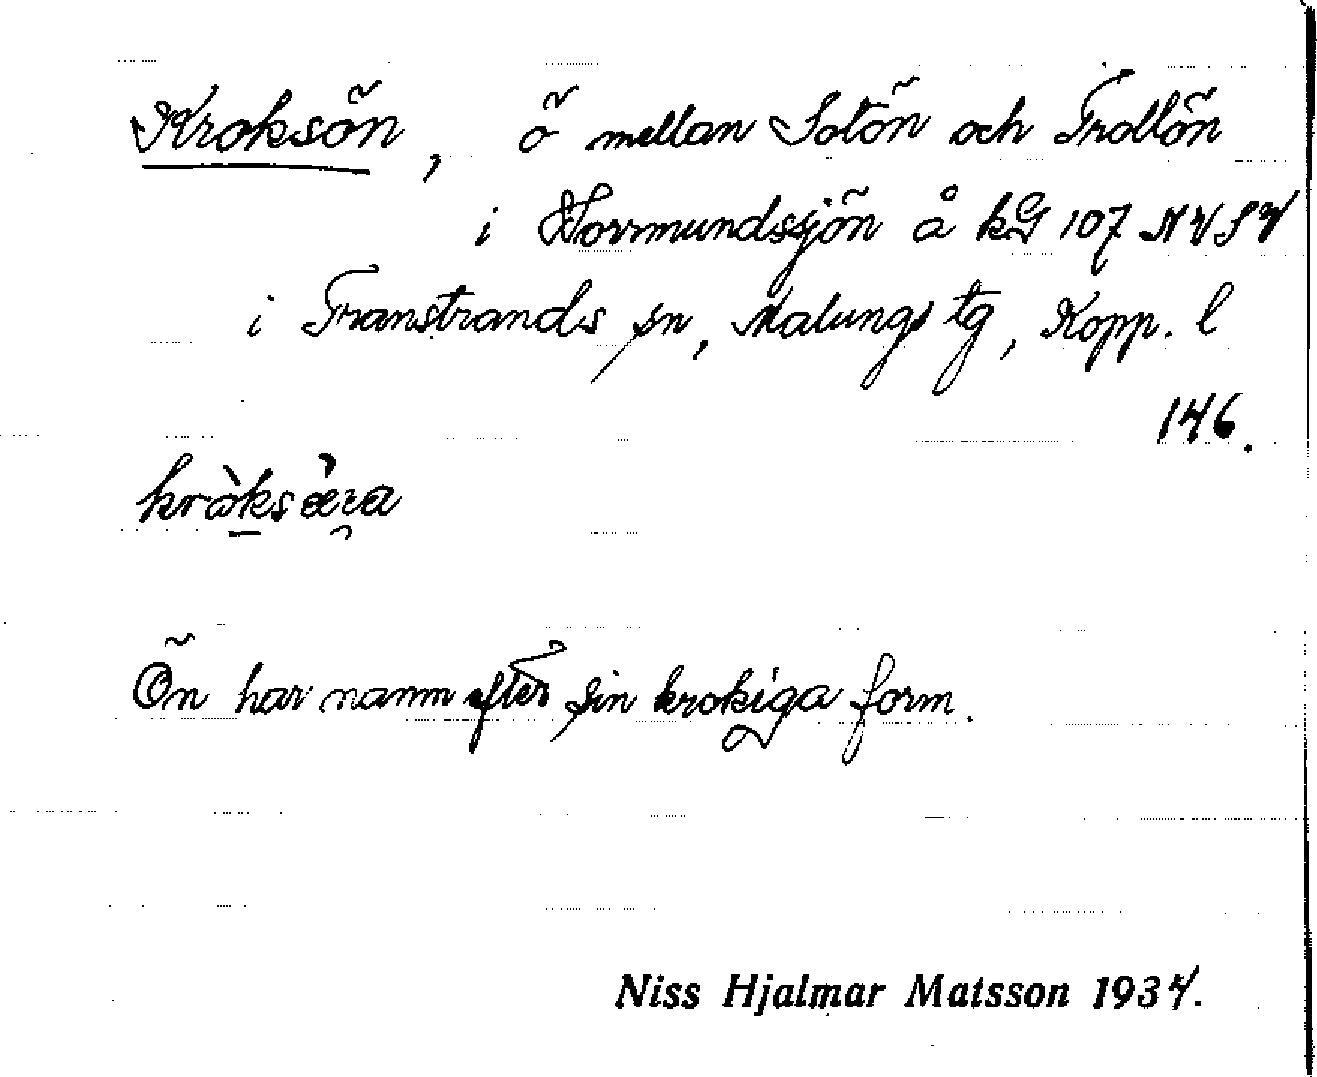 Kroksön, ö mellan Sotön och Trollön
i Horrmundssjön å kG 107 NVSV
i Transtrands sn, Malungs tg, Kopp. l
146.
Ön har namn efter sin krokiga form.
Niss Hjalmar Matsson 1934.